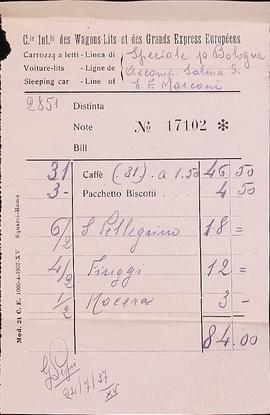 C.ie Int.le des Wagons-Lits et des Grands Express Européens
Carrozza a letti - Linea di Speciale p Bologna
Voiture-lits - Ligne de Accomp. Salma S.
Sleeping car - Line of S E Marconi
2851 Distinta
Note No 17102 *
Bill
31 Caffè (31) a 1.50 46 50
3- Pacchetto Biscotti 4 50
6/2 S Pellegrino 18 =
4/2 Fiuggi 12 =
1/2 Nocera 3 -
84.00
24/7/37
XV
Mod. 21 C. E. 1000-4-1937-XV Squarci-Roma